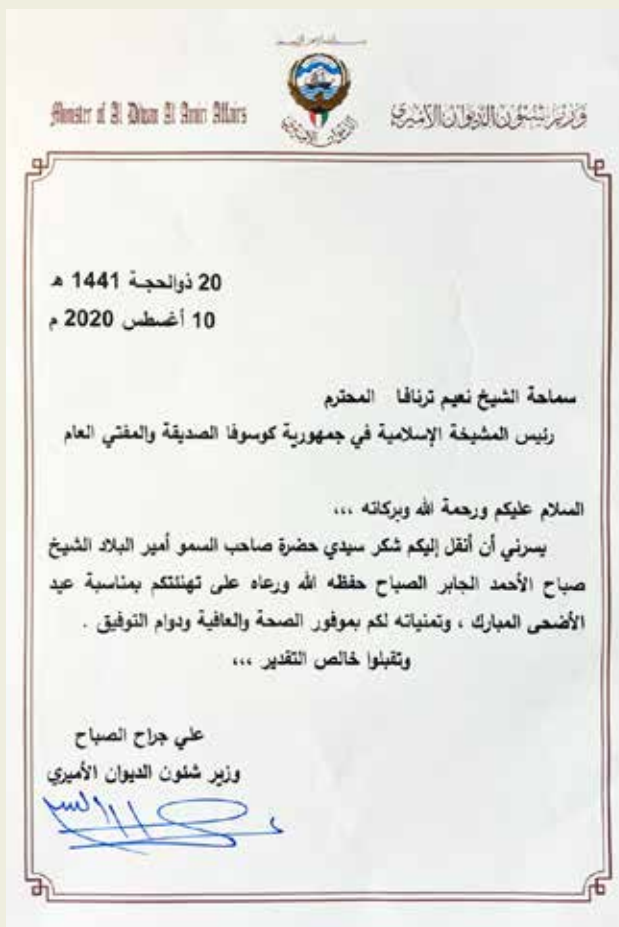 بسم الله الرحمن الرحيم
Minister of Al Diwan Al Amiri Affairs
وزير شئون الديوان الأميري
الديوان الأميري
20 ذوالحجـة 1441 هـ
10 أغسطس 2020 م
سماحة الشيخ نعيم ترنافا المحترم
رئيس المشيخة الإسلامية في جمهورية كوسوفا الصديقة والمفتي العام
السلام عليكم ورحمة الله وبركاته ،،،
يسرني أن أنقل إليكم شكر سيدي حضرة صاحب السمو أمير البلاد الشيخ
صباح الأحمد الجابر الصباح حفظه الله ورعاه على تهنئتكم بمناسبة عيد
الأضحى المبارك ، وتمنياته لكم بموفور الصحة والعافية ودوام التوفيق .
وتقبلوا خالص التقدير ،،،
علي جراح الصباح
وزير شئون الديوان الأميري